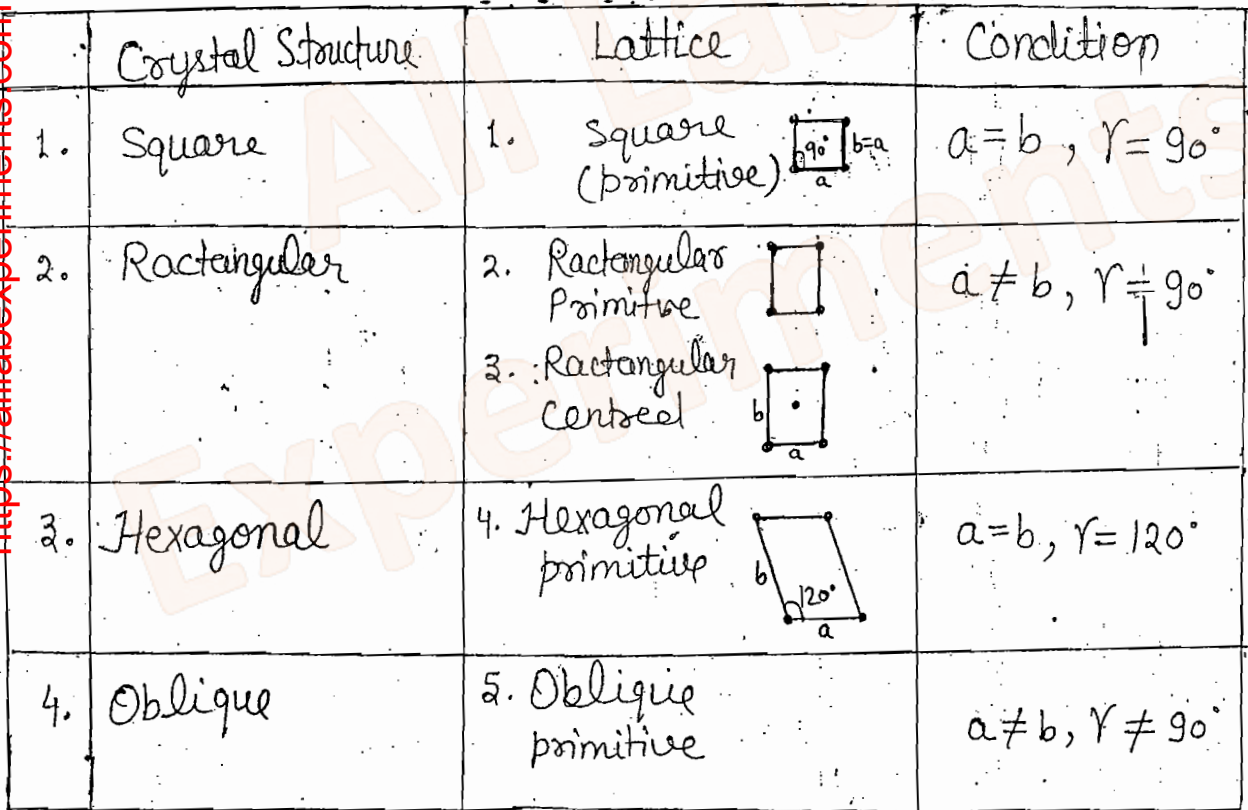 Crystal Structure
Lattice
Condition
1. Square
1. Square
(primitive)
90°
b=a
a
a = b , γ = 90°
2. Ractangular
2. Ractangular
Primitve
a ≠ b , γ ≠ 90°
3. Ractangular
Centred
b
a
3. Hexagonal
4. Hexagonal
primitive
b
120°
a
a = b , γ = 120°
4. Oblique
5. Oblique
primitive
a ≠ b , γ ≠ 90°
All Lab
Experiments